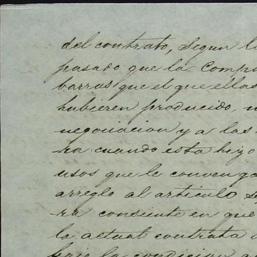 del contrato, segun l
pasado que la Comp
barras que el que ellas
hubieren producido, 
negociacion y a las
ha cuando esta hizo
usos que le conveng
arreglo al articulo s
ra consiente en que
la actual contrata
bajo la condicion a